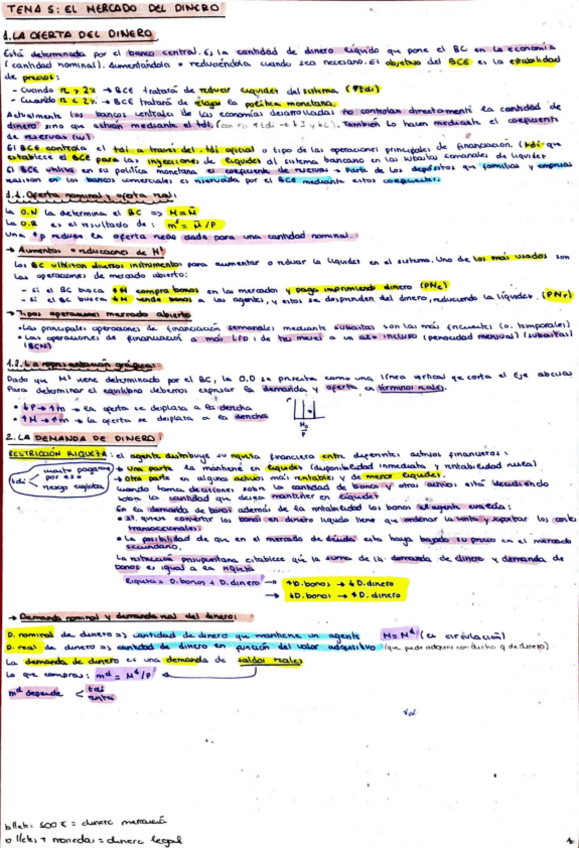 TEMA 5: EL MERCADO DEL DINERO
1. LA OFERTA DEL DINERO
Está determinada por el banco central. Es la cantidad de dinero líquido que pone el BC en la economía
(cantidad nominal). Aumentándola o reduciéndola cuando sea necesario. El objetivo del BCE es la estabilidad
de precios:
- Cuando π > 2% → BCE tratará de reducir liquidez del sistema (↑tdi)
- Cuando π < 2% → BCE tratará de relajar la política monetaria.
Actualmente los bancos centrales de las economías desarrolladas no controlan directamente la cantidad de
dinero sino que actúan mediante el tdi. También lo hacen mediante el coeficiente
de reservas (w)
El BCE controla el tdi a través del tdi oficial o tipo de las operaciones principales de financiación (tdi que
establece el BCE para las inyecciones de liquidez al sistema bancario en las subastas semanales de liquidez
El BCE utiliza en su política monetaria el coeficiente de reservas → Parte de los depósitos que familias y empresas
realizan en los bancos comerciales es reservada por el BCE mediante estos coeficientes.
1.1. Oferta nominal y oferta real:
La O.N la determina el BC => M = M̄
La O.R es el resultado de: mˢ = M̄/P
Una ↑P reduce la oferta real dada para una cantidad nominal.
→ Aumentos o reducciones de Mˢ
Los BC utilizan diversos instrumentos para aumentar o reducir la liquidez en el sistema. Uno de los más usados son
las operaciones de mercado abierto:
- si el BC busca ↑M compra bonos en los mercados y paga imprimiendo dinero (PNE)
- si el BC busca ↓M vende bonos a los agentes, y estos se desprenden del dinero, reduciendo la liquidez. (PNR)
→ Tipos operaciones mercado abierto
• Las principales operaciones de financiación semanales mediante subastas son las más frecuentes (o. temporales)
• Las operaciones de financiación a más L/P: de tres meses a un año inclusive (periodicidad mensual) (subastas)
(BCN)
1.2. La representación gráfica:
Dado que Mˢ viene determinado por el BC, la O.D se presenta como una línea vertical que corta el eje abcisas
Para determinar el equilibrio debemos expresar la demanda y oferta en términos reales.
• ↓P → ↑m → la oferta se desplaza a la derecha
• ↑M → ↑m → la oferta se desplaza a la derecha
M₀
P
2. LA DEMANDA DE DINERO:
RESTRICCIÓN RIQUEZA: el agente distribuye su riqueza financiera entre diferentes activos financieros:
→ Una parte la mantiene en liquidez (disponibilidad inmediata y rentabilidad nula).
tdi < cuanto pagamos por eso
riesgo
→ Otra parte en algunos activos más rentables y de menor liquidez.
Cuando toma decisiones sobre la cantidad de bonos y otros activos, está decidiendo
sobre la cantidad que desea mantener en liquidez
En la demanda de bonos además de la rentabilidad los bonos el agente evalúa:
• Si quiere convertir los bonos en dinero líquido tiene que ordenar la venta y soportar los costes
transaccionales.
• La posibilidad de que en el mercado de deuda esta haya bajado su precio en el mercado
secundario.
La restricción presupuestaria establece que la suma de la demanda de dinero y demanda de
bonos es igual a la riqueza
Riqueza = D.bonos + D.dinero → ↑D.bonos → ↓D.dinero
→ ↓D.bonos → ↑D.dinero
→ Demanda nominal y demanda real del dinero:
D. nominal de dinero => cantidad de dinero que mantiene un agente M = Mᵈ (en circulación)
D. real de dinero => cantidad de dinero en función del valor adquisitivo (que puede adquirir con dicha q de dinero)
La demanda de dinero es una demanda de saldos reales
Lo que compras: mᵈ = Mᵈ/P
mᵈ depende < tdi
renta
billete 500€ = dinero mercancía
billetes + monedas = dinero legal